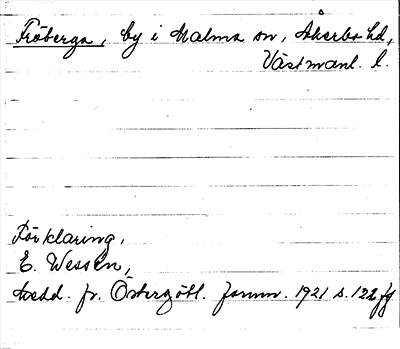 Fröberga, by i Malma sn, Åkerbo hd,
Västmanl. l.
Förklaring,
E. Wessén,
Medd. fr. Östergötl. fornm. 1921 s. 122 fg